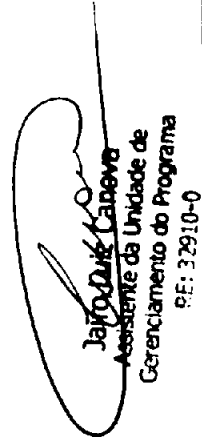 Jairo Luiz Canova
Assistente da Unidade de
Gerenciamento do Programa
RE: 32910-0